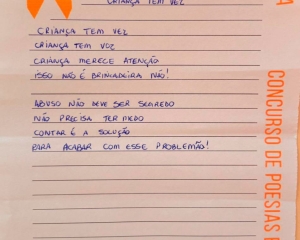 CRIANÇA TEM VEZ
CRIANÇA TEM VEZ
CRIANÇA TEM VOZ
CRIANÇA MERECE ATENÇÃO
ISSO NÃO É BRINCADEIRA NÃO!
ABUSO NÃO DEVE SER SEGREDO
NÃO PRECISA TER MEDO
CONTAR É A SOLUÇÃO
PARA ACABAR COM ESSE PROBLEMÃO!
CONCURSO DE POESIAS